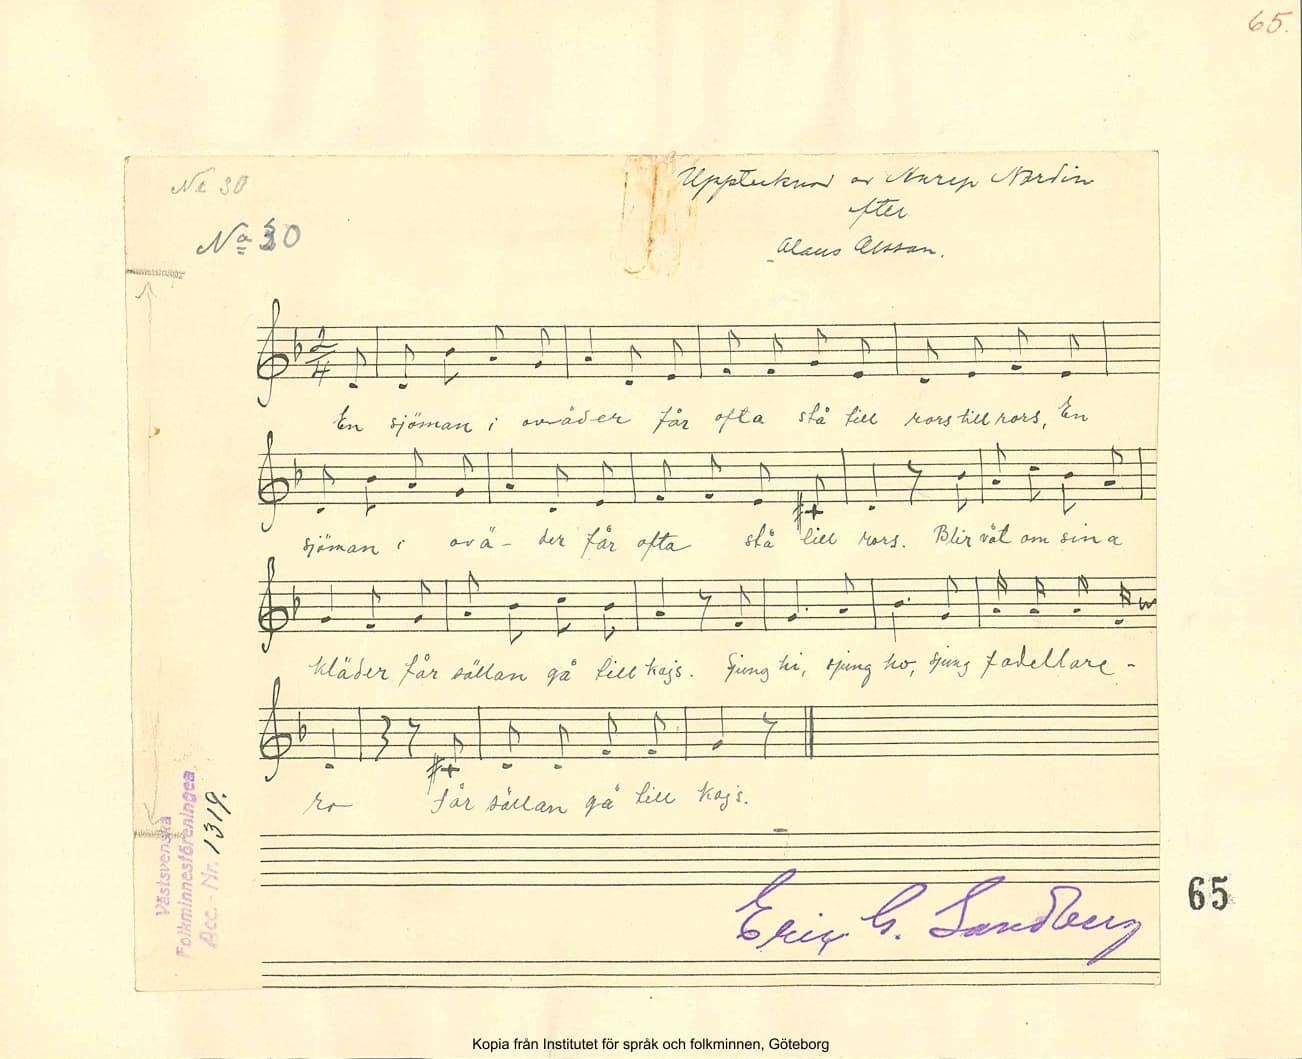 65.
No 30
No 30
Upptecknad av Nordin
efter
Olaus Olsson.
2/4
En sjöman i oväder får ofta stå till rors till rors, En
sjöman i ovä- der får ofta stå till rors. Blir våt om sina
kläder får sällan gå till kojs. Sjung hi, sjung ho, sjung fadellare-
ro får sällan gå till kojs.
Västsvenska
Folkminnesföreningen
Acc.-Nr. 1319.
Eric G. Sandberg
65
Kopia från Institutet för språk och folkminnen, Göteborg